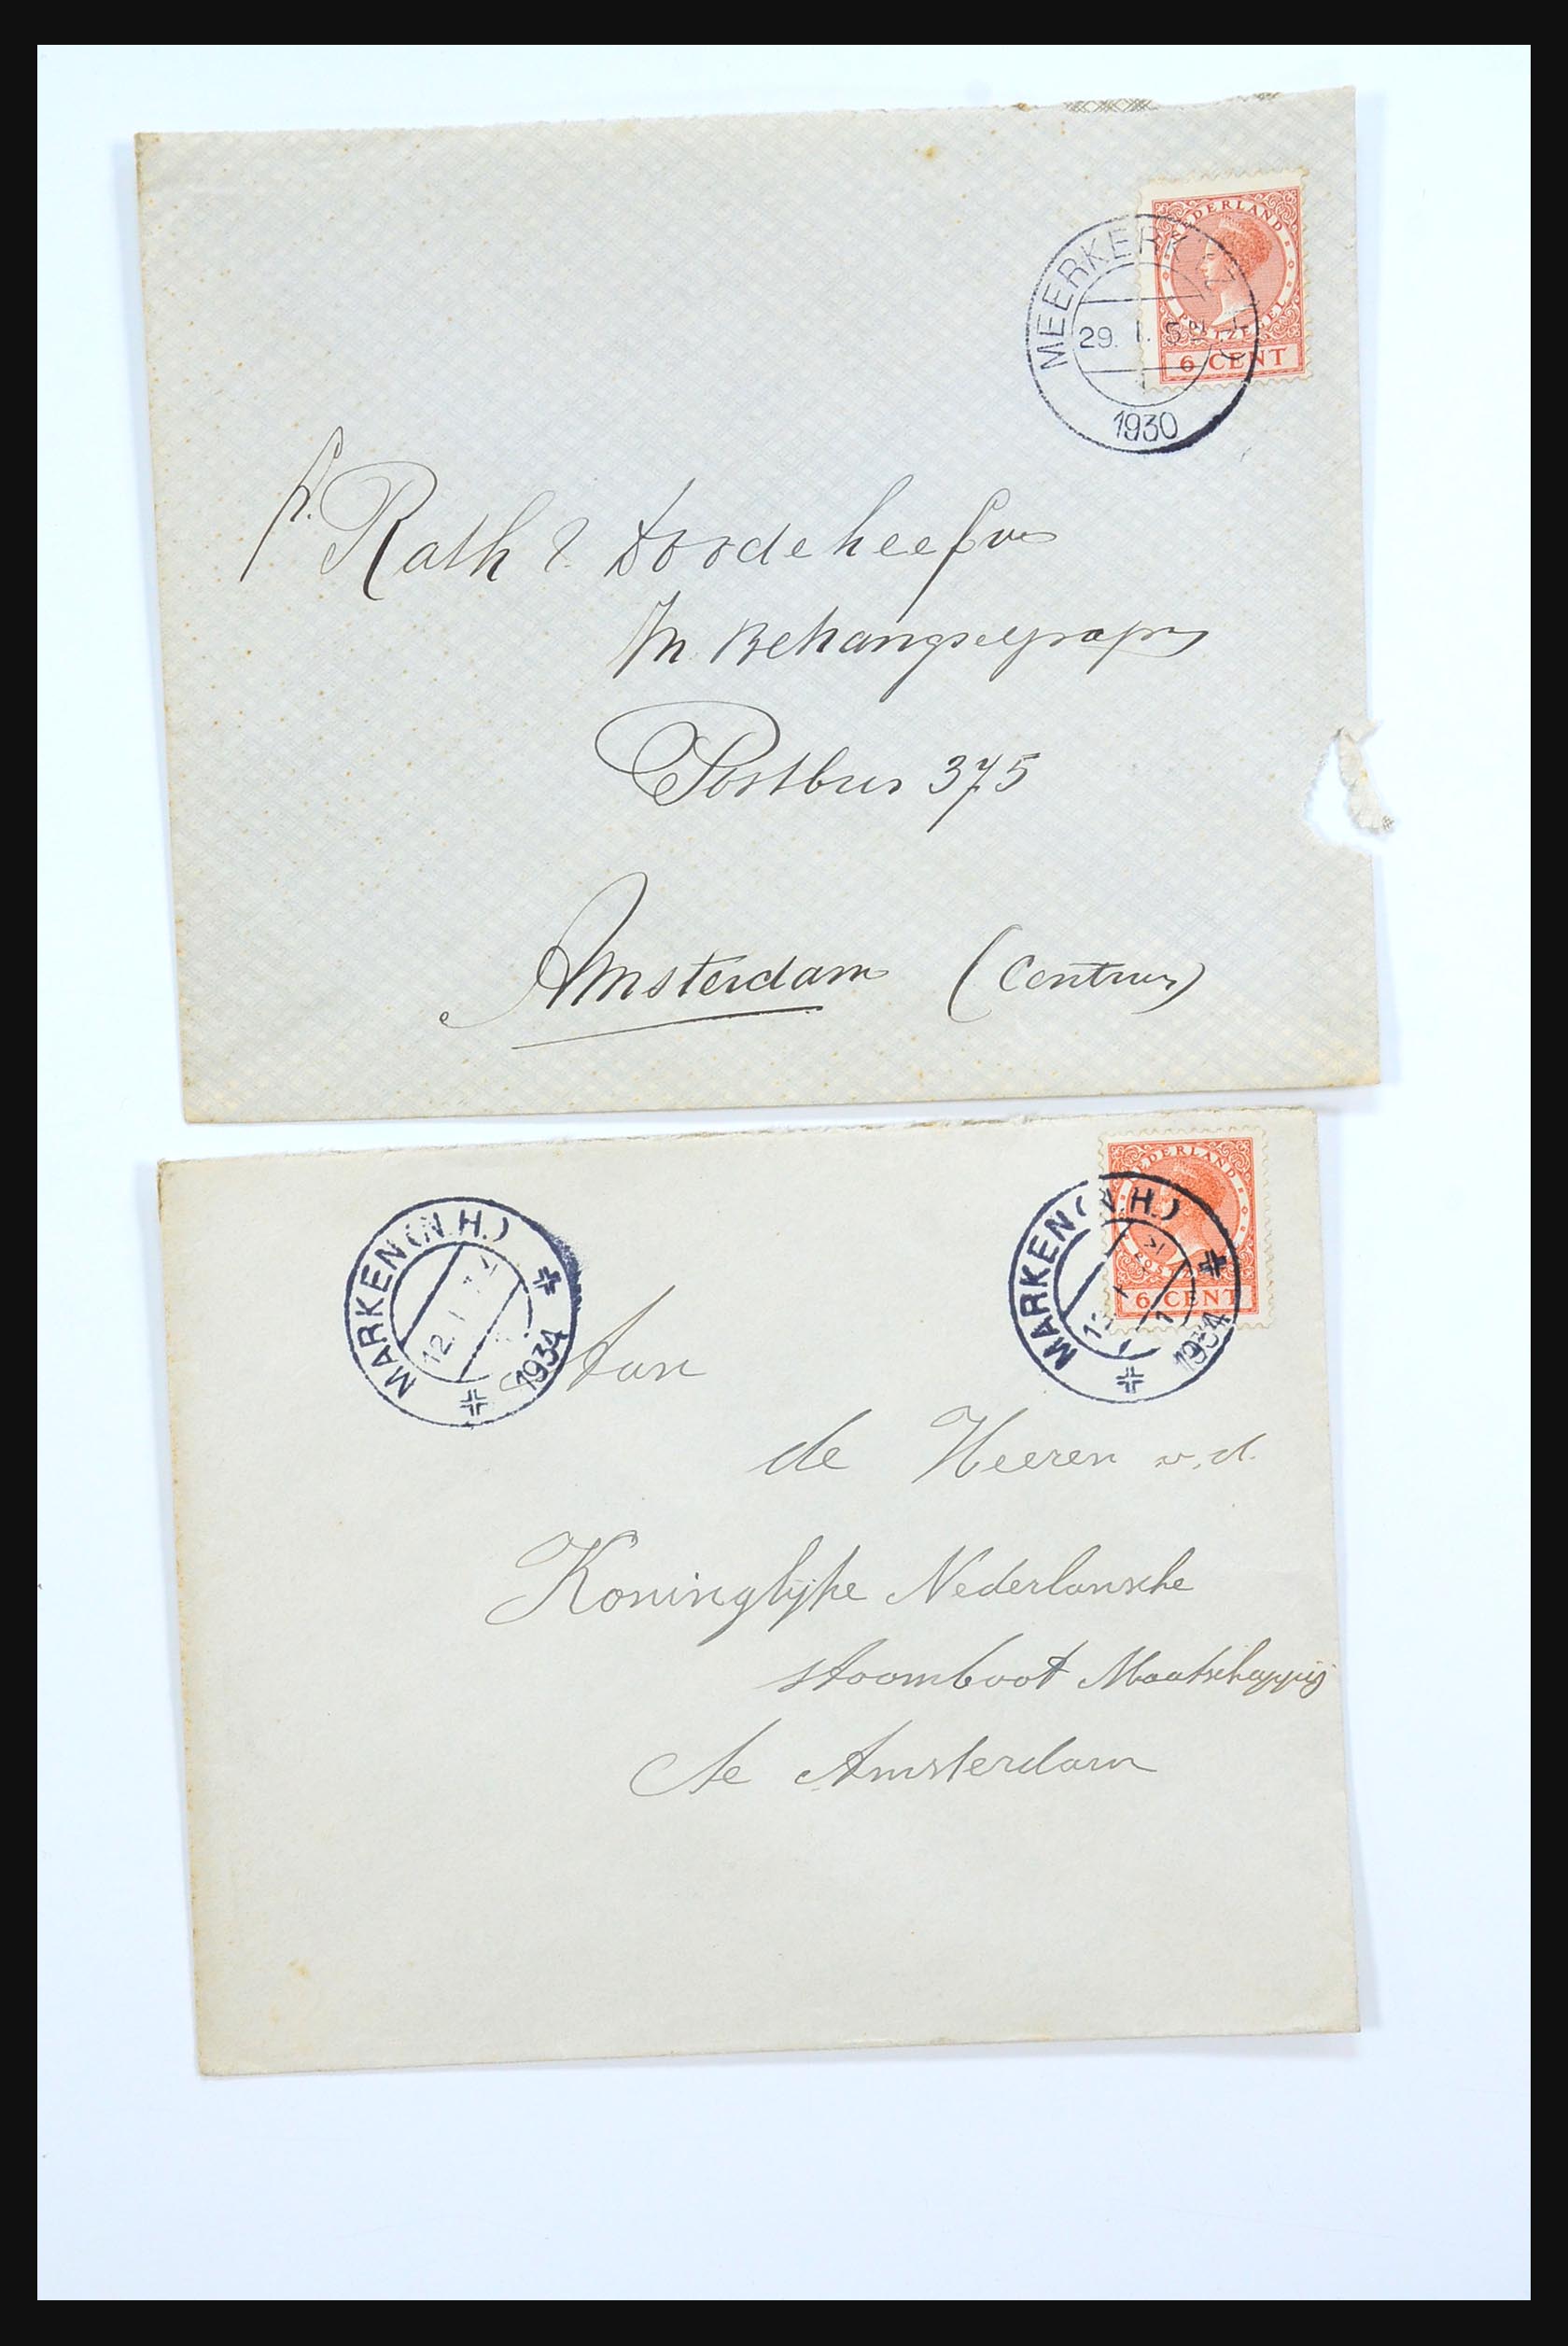 NEDERLAND
POSTZEGEL
6 CENT
MEERKERK (Z.H.)
29. 1. 5
1930
Rath & Doodeheefver
In Behangselpapier
Postbus 375
Amsterdam (Centrum)
NEDERLAND
6 CENT
MARKEN (N.H.)
12 1
1934
MARKEN (N.H.)
1934
Aan
de Heeren v.d.
Koninglijke Nederlansche
stoomboot Maatschappij
te Amsterdam